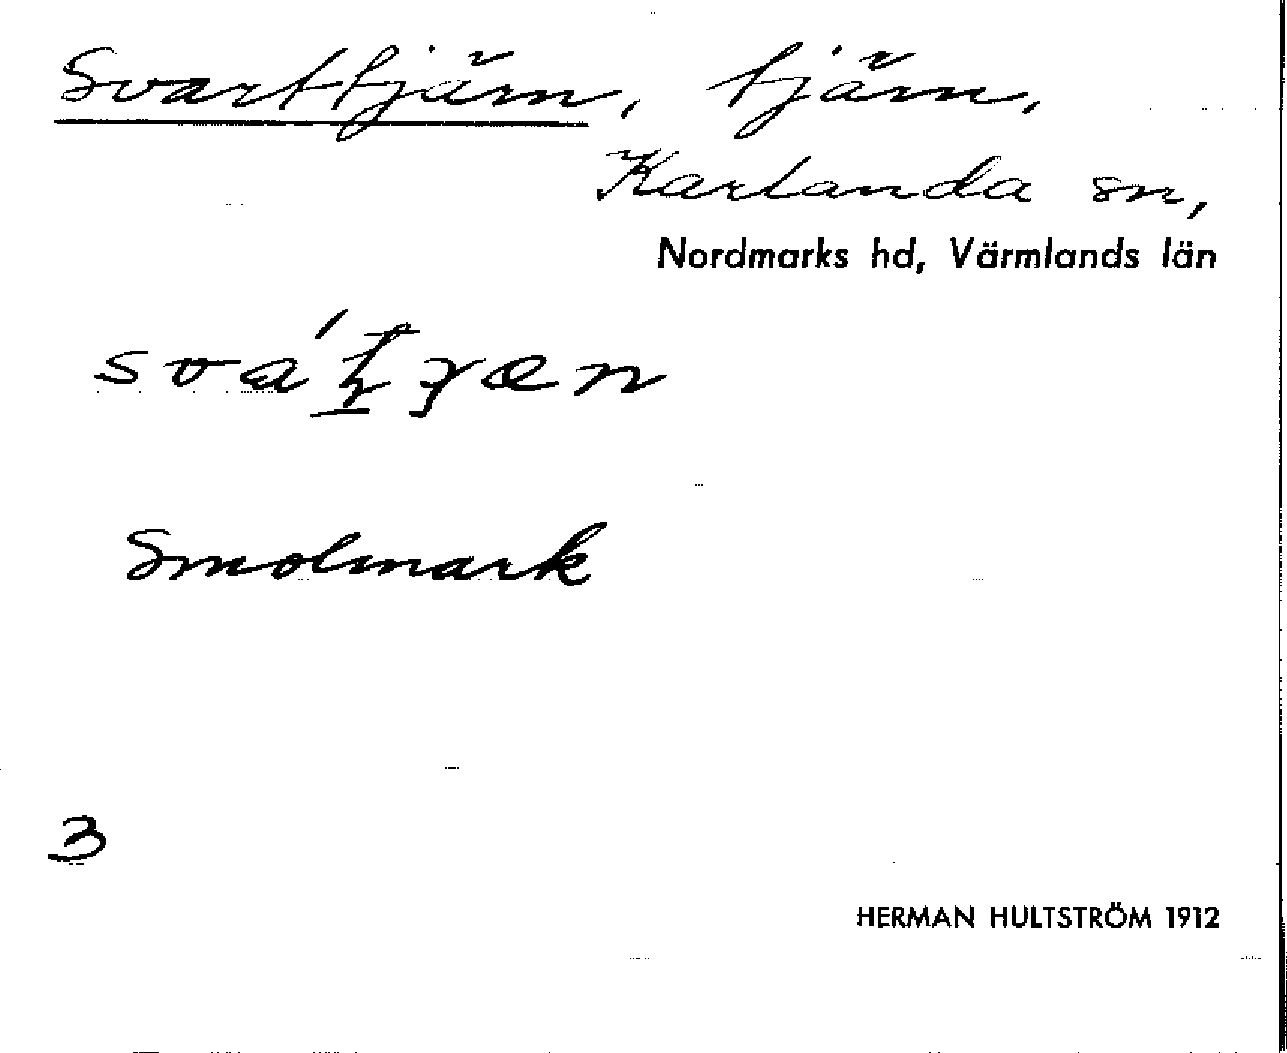 Svarttjärn, tjärn,
Karlanda sn,
Nordmarks hd, Värmlands län
Smolmark
3
HERMAN HULTSTRÖM 1912